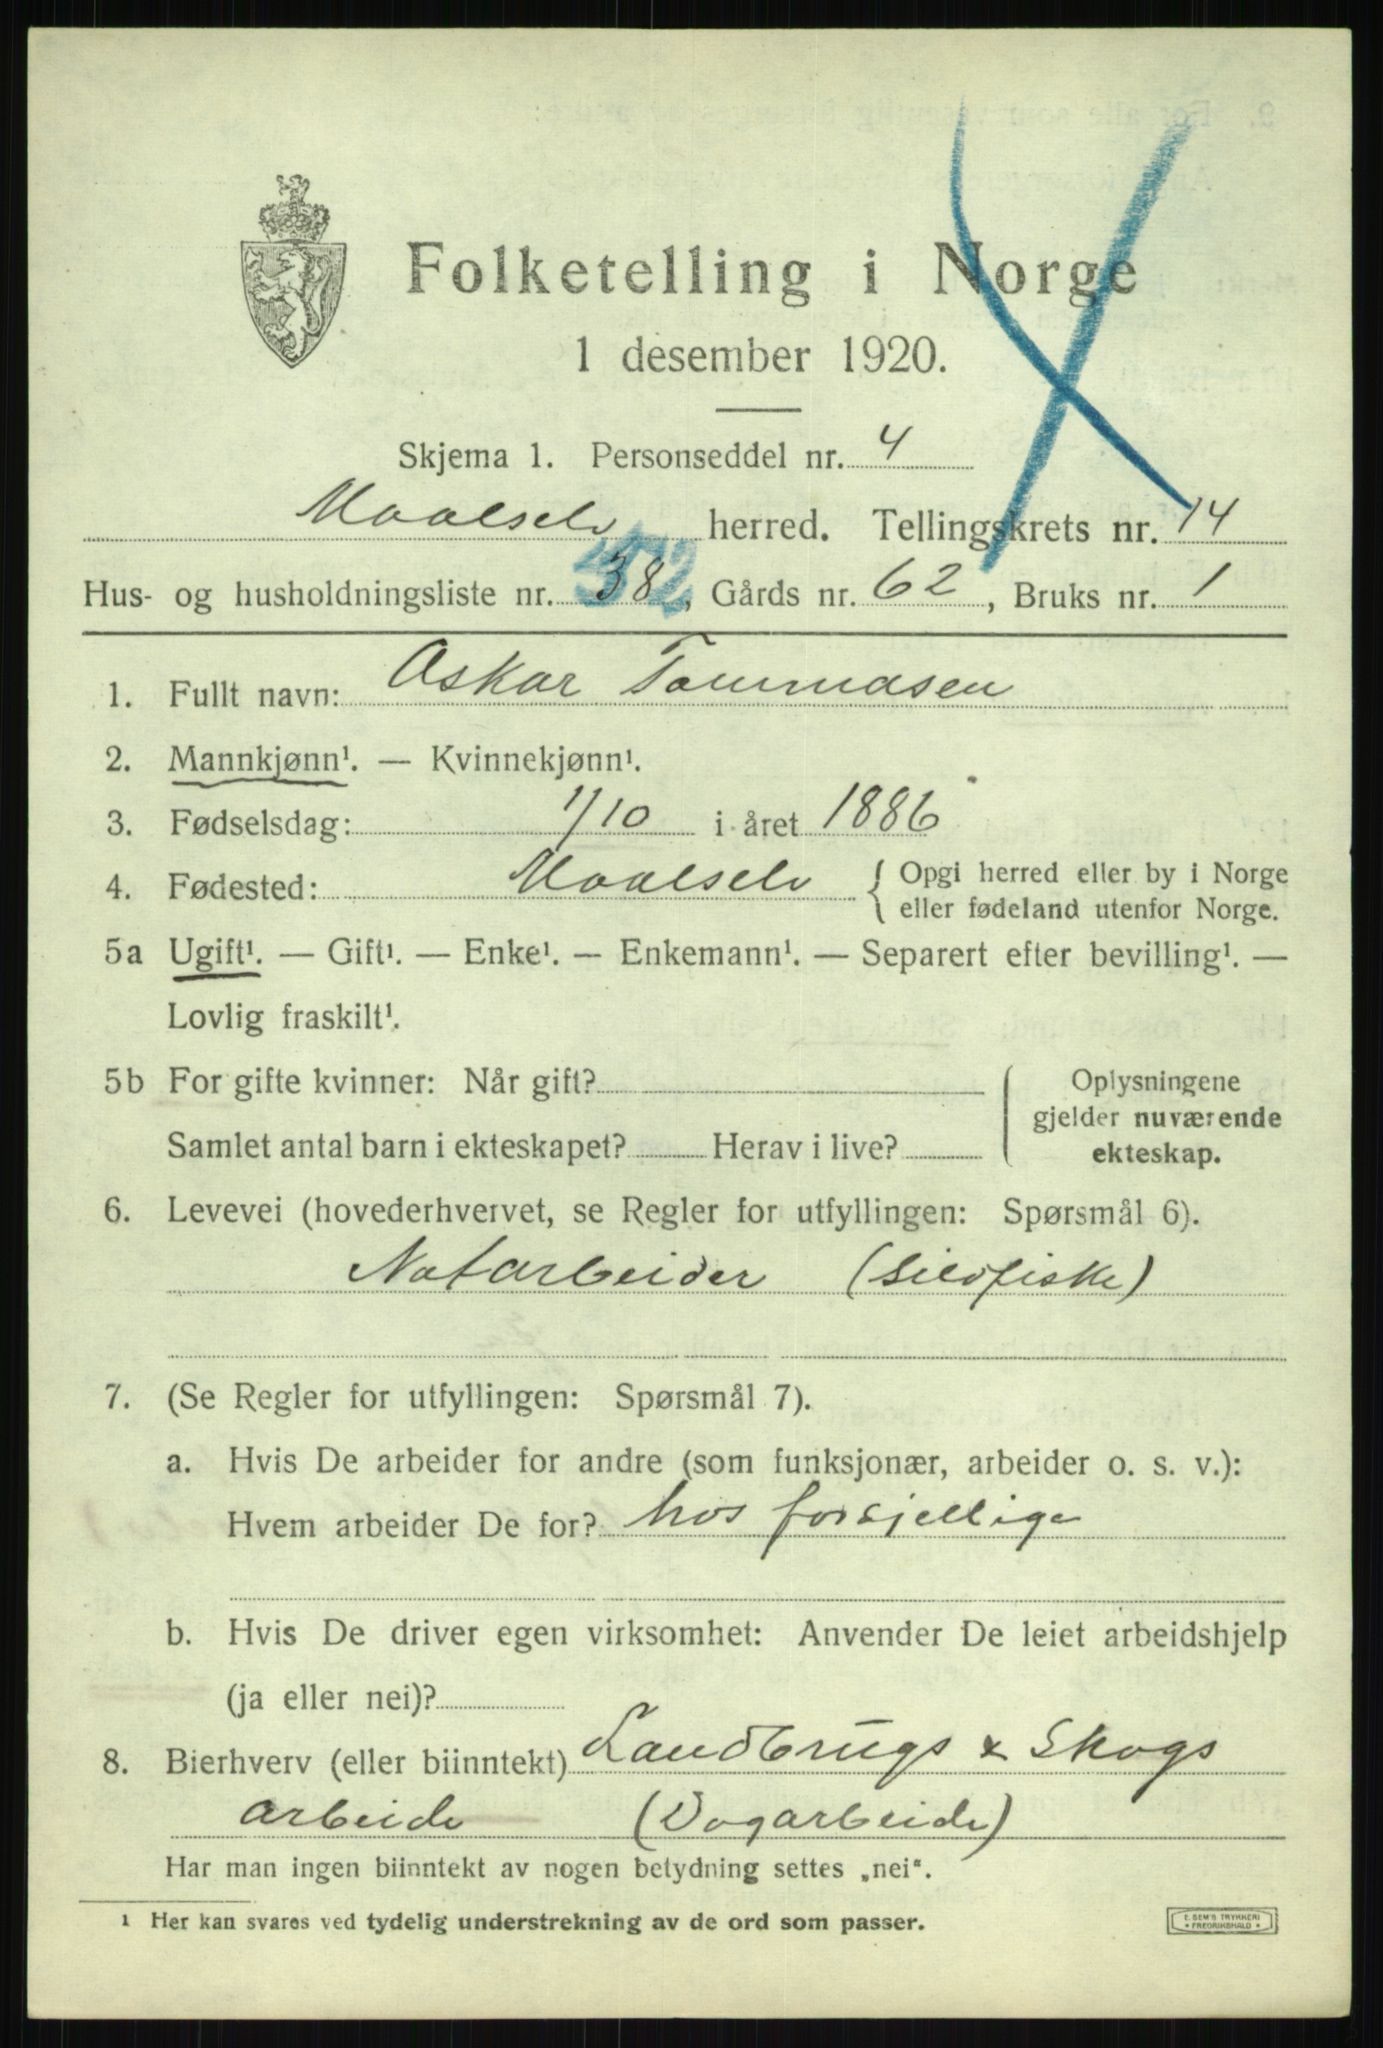 Folketelling i Norge
1 desember 1920.
Skjema 1. Personseddel nr. 4
Maalselv herred. Tellingskrets nr. 14
Hus- og husholdningsliste nr. 38, Gårds nr. 62, Bruks nr. 1
1. Fullt navn: Oskar Tommasen
2. Mannkjønn¹. — Kvinnekjønn¹.
3. Fødselsdag: 1/10 i året 1886
4. Fødested: Maalselv { Opgi herred eller by i Norge
eller fødeland utenfor Norge.
5a Ugift¹. — Gift¹. — Enke¹. — Enkemann¹. — Separert efter bevilling¹. —
Lovlig fraskilt¹.
5b For gifte kvinner: Når gift?
Samlet antal barn i ekteskapet? Herav i live?
Oplysningene
gjelder nuværende
ekteskap.
6. Levevei (hovederhvervet, se Regler for utfyllingen: Spørsmål 6).
Notarbeider (Sildfiske)
7. (Se Regler for utfyllingen: Spørsmål 7).
a. Hvis De arbeider for andre (som funksjonær, arbeider o. s. v.):
Hvem arbeider De for? hos forsjellige
b. Hvis De driver egen virksomhet: Anvender De leiet arbeidshjelp
(ja eller nei)?
8. Bierhverv (eller biinntekt) Landbrugs & Skogs
arbeide (Dagarbeide)
Har man ingen biinntekt av nogen betydning settes „nei“.
¹ Her kan svares ved tydelig understrekning av de ord som passer.
E. SEM'S TRYKKERI
* FREDRIKSHALD *